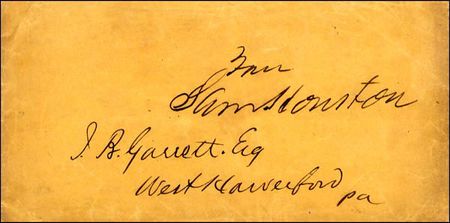 From
Sam Houston
J. B. Garrett. Esq
West Haverford
Pa